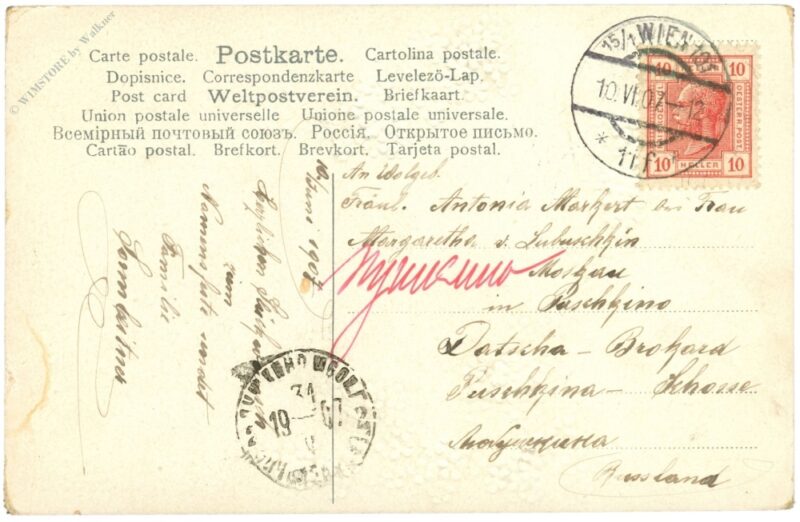 © WIMSTORE by Walkner
Carte postale. Postkarte. Cartolina postale.
Dopisnice. Correspondenzkarte Levelező-Lap.
Post card Weltpostverein. Briefkaart.
Union postale universelle Unione postale universale.
Всемірный почтовый союзъ. Россія. Открытое письмо.
Cartão postal. Brefkort. Brevkort. Tarjeta postal.
15/1 WIEN
10. VI. 07 - 12
* 11 f
10 10
OESTERR. POST
10 HELLER 10
10.
Juni 1907
Herzlichen
zum
Namensfeste sendet
Familie
An
Fräul. Antonia Markert bei Frau
Margaretha v. Lubuschkin
Пушкино
Moskau
in Puschkino
Datscha - Brokard
Puschkina - Schosse
Любушкина
Russland
31
19 07